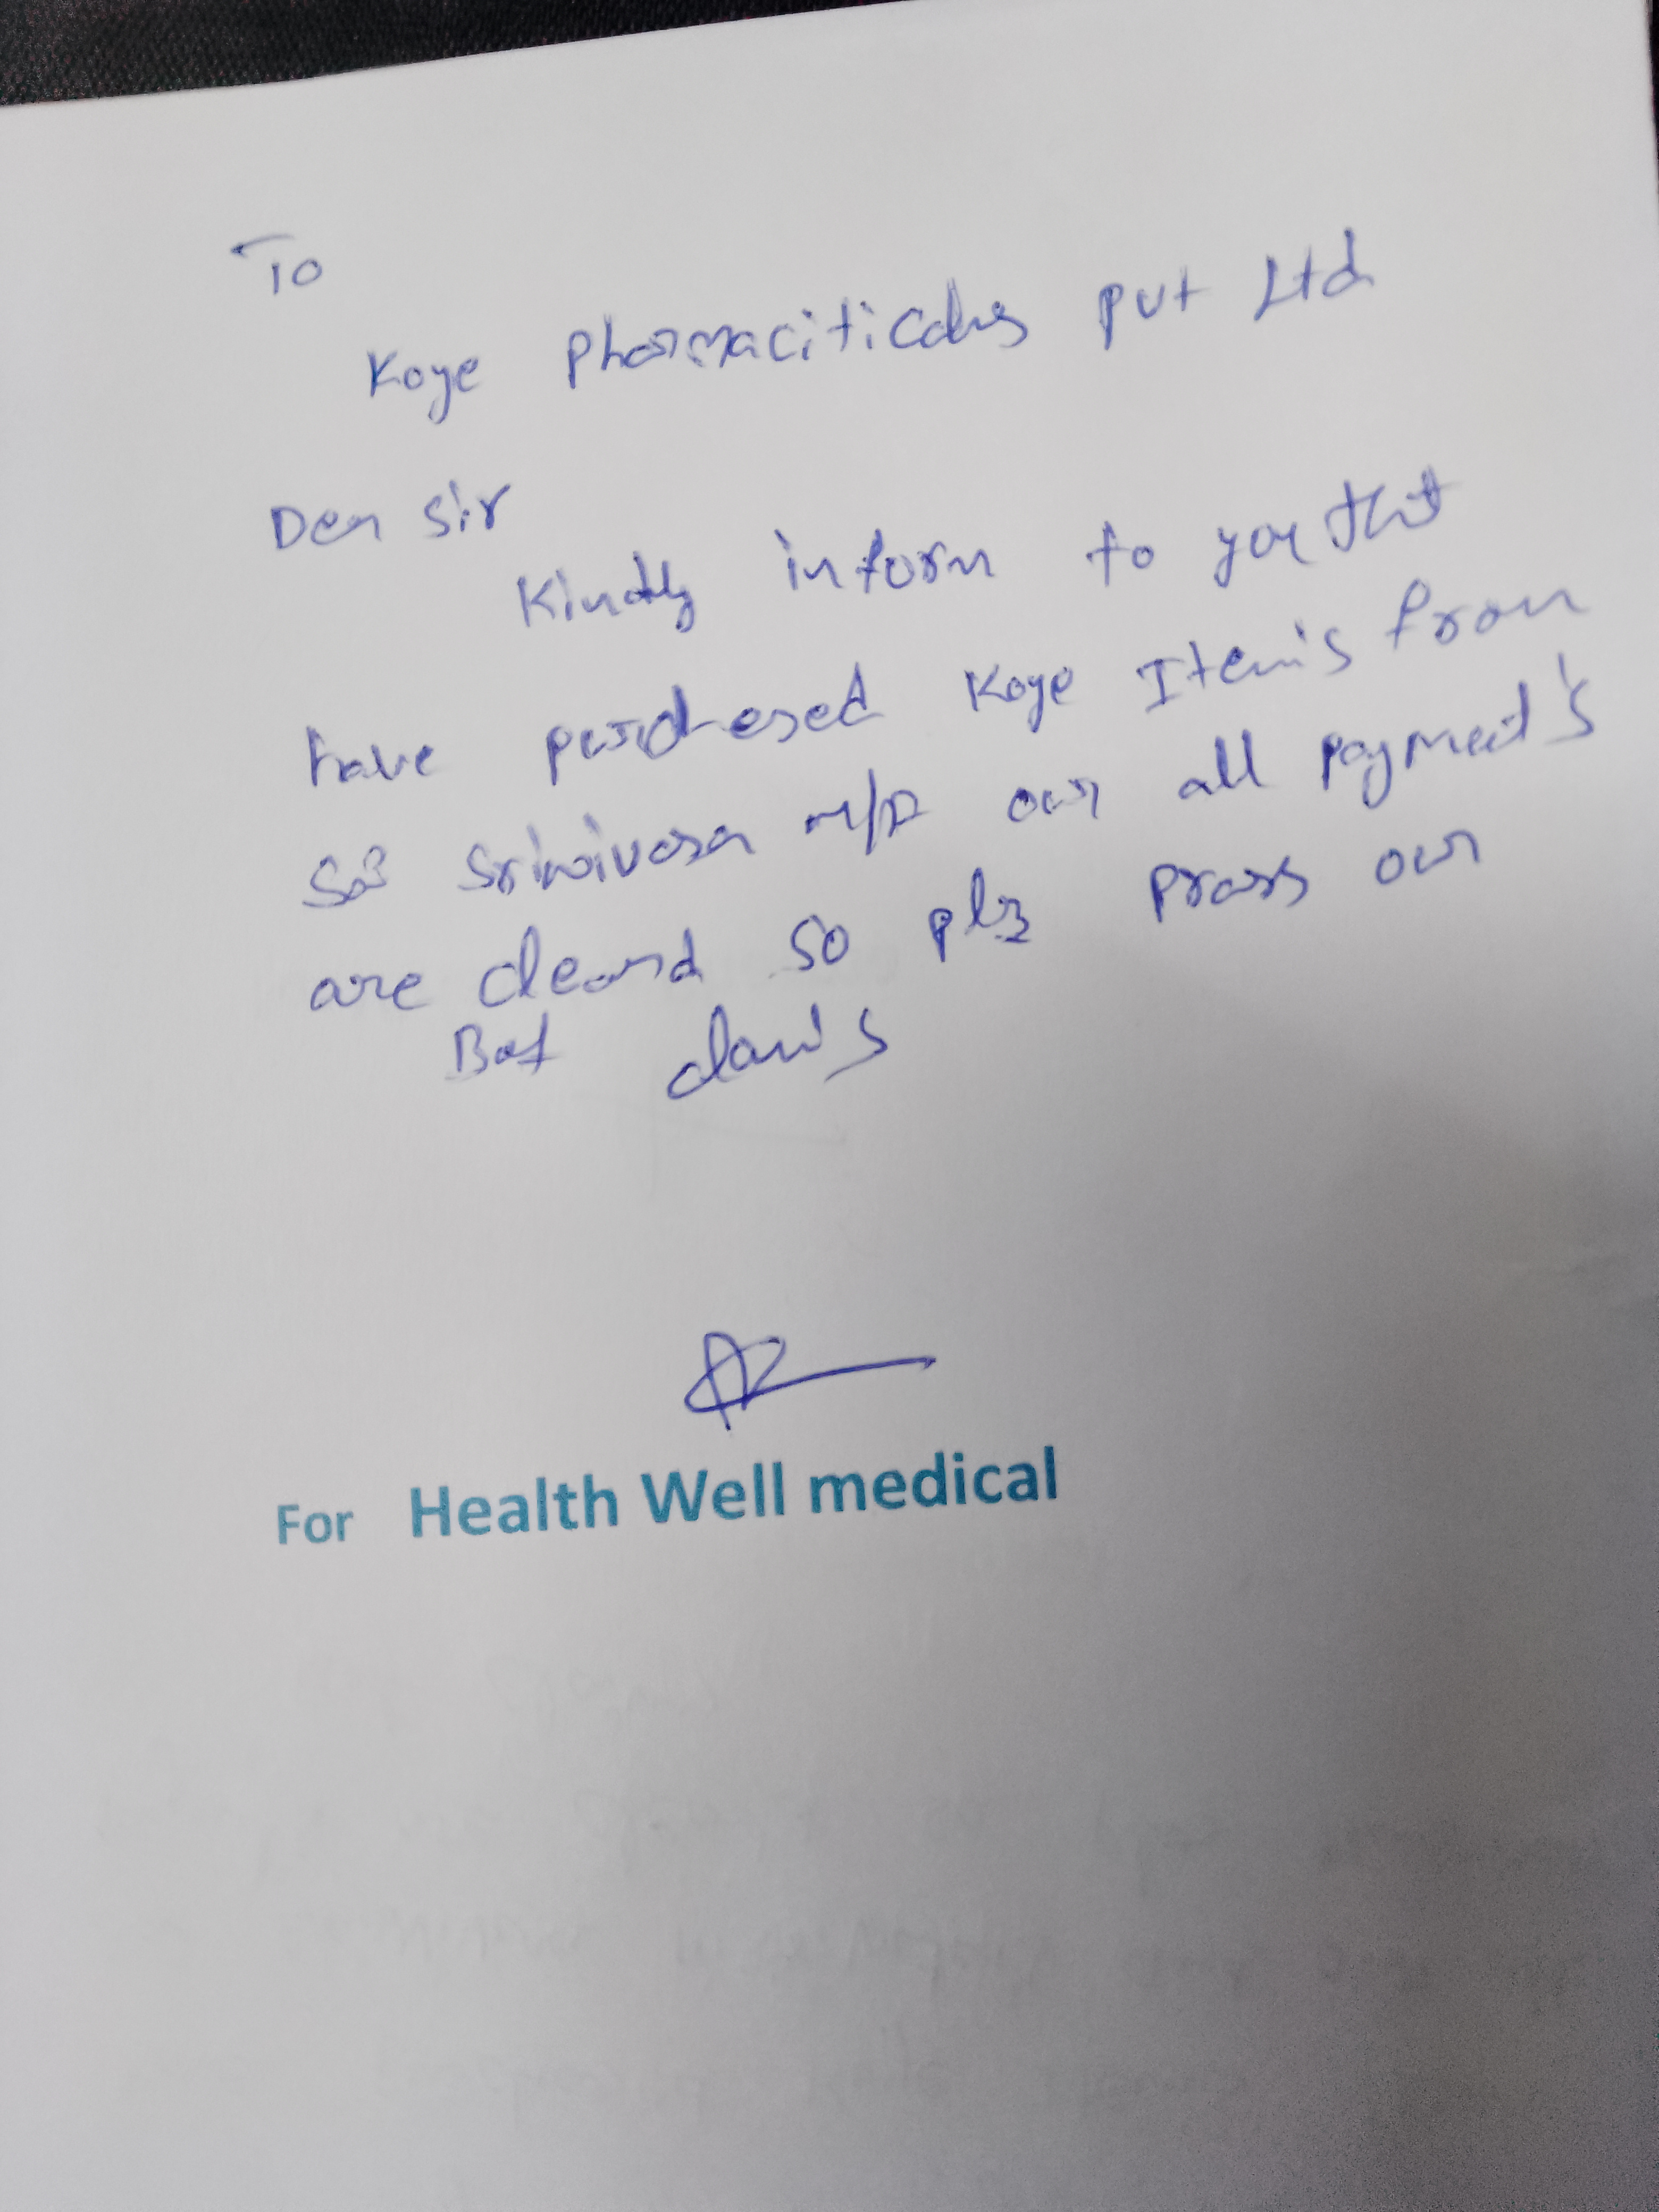 To
Koye pharmaciticals pvt Ltd
Dear Sir
Kindly inform to you that
have purchesed Koye Item's from
Sai Srinivasa m/A our all payment's
are cleard so plz prass our
claim's
For Health Well medical